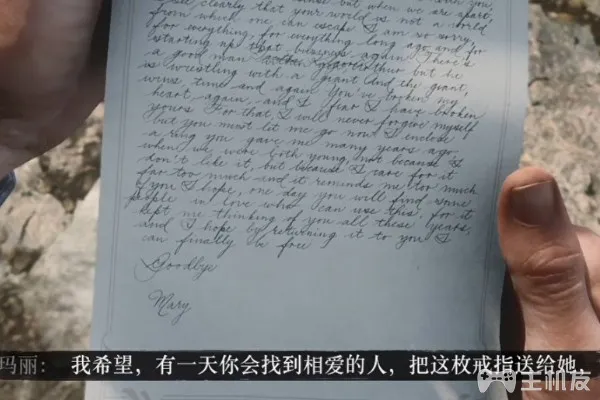 but when we are apart,
see clearly that your world is not a world
from which one can escape I am so sorry
for everything, for everything long ago and for
starting up that business again There's
a good man but he
is wrestling with a giant And the giant,
wins time and again You've broken my
heart again, and I fear I have broken
yours For that, I will never forgive myself
but you must let me go now I enclose
a ring you gave me many years ago
when we were both young not because I
don't like it, but because I care for it
far too much and it reminds me too much
of you I hope, one day you will find some
people in love who can use this, for it
kept me thinking of you all these years
and I hope by returning it to you I
can finally be free
Goodbye
Mary
玛丽： 我希望，有一天你会找到相爱的人，把这枚戒指送给她，
主机友